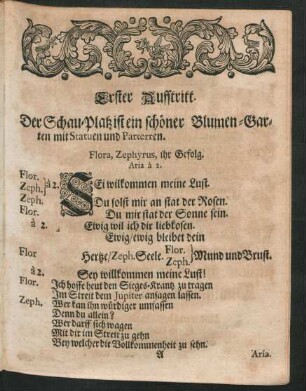 Erster Aufftritt.
Der Schau-Platz ist ein schöner Blumen-Gar-
ten mit Statuen und Parterren.
Flora, Zephyrus, ihr Gefolg.
Aria à 2.
Flor. Zeph. à 2. SEi wilkommen meine Lust.
Zeph. Du solst mir an stat der Rosen.
Flor. Du mir stat der Sonne sein.
à 2. Ewig wil ich dir liebkosen.
Ewig/ ewig bleibet dein
Flor Hertze/ Zeph. Seele. Flor. Zeph. } Mund und Brust.
à 2. Sey willkommen meine Lust!
Flor. Ich hoffe heut den Sieges-Krantz zu tragen
Im Streit dem Jupiter ansagen lassen.
Zeph. Wer kan ihn würdiger umfassen
Denn du allein?
Wer darff sich wagen
Mit dir im Streit zu gehn
Bey welcher die Vollkommenheit zu sehn.
A Aria.